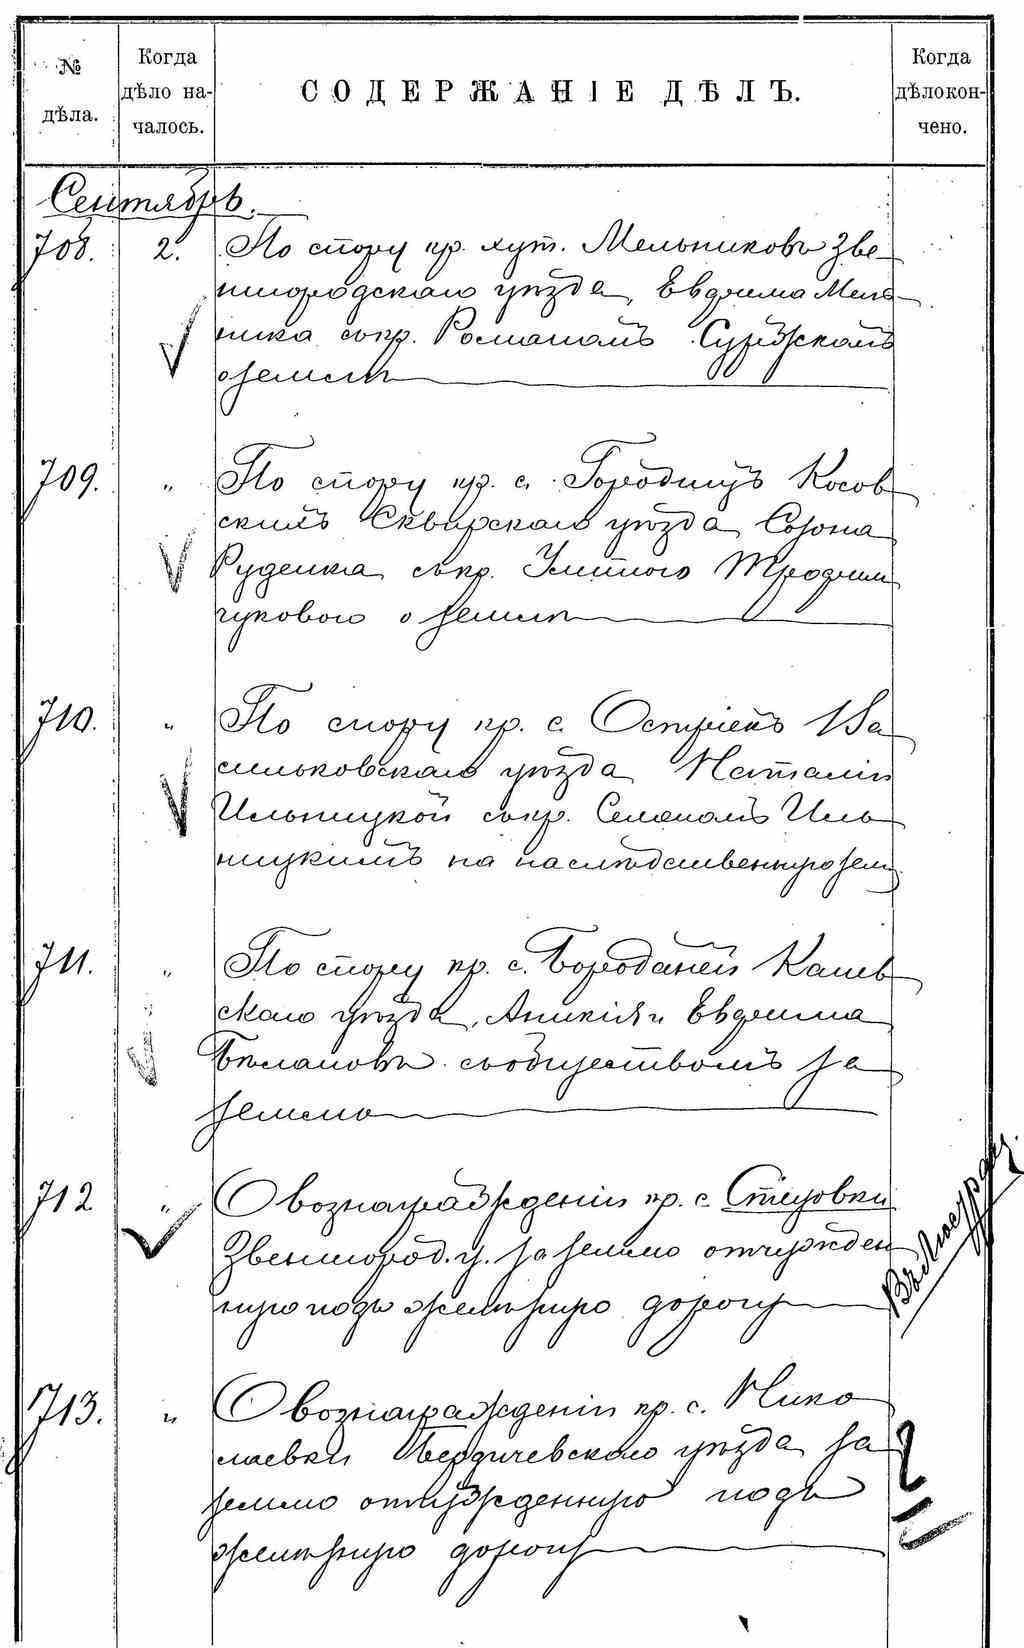 № дѣла.
Когда дѣло на-
чалось.
СОДЕРЖАНІЕ ДѢЛЪ.
Когда дѣло кон-
чено.
Сентябрь.
708. 2. По спору кр. хут. Мельниковъ Зве-
нигородскаго уѣзда, Евдокима Мель-
ника съ кр. Романомъ
о землѣ
709. „ По спору кр. с. Городищъ Косов
скихъ Сквирскаго уѣзда Созона
Руденка съ кр.
о землѣ
710. „ По спору кр. с. Острiекъ Ва
сильковскаго уѣзда Наталіи
Ильницкой съ кр. Семеномъ Иль
ницкимъ на наслѣдственную землю
711. „ По спору кр. с. Бороданей Канев
скаго уѣзда, Аникія и Евдокима
съ обществомъ за
землю
712 „ О вознагражденіи кр. с. Стецовки
Звенигород. у. за землю отчужден
ную подъ желѣзную дорогу
713. „ О вознагражденіи кр. с. Нико
лаевки Бердичевскаго уѣзда за
землю отчужденную подъ
желѣзную дорогу